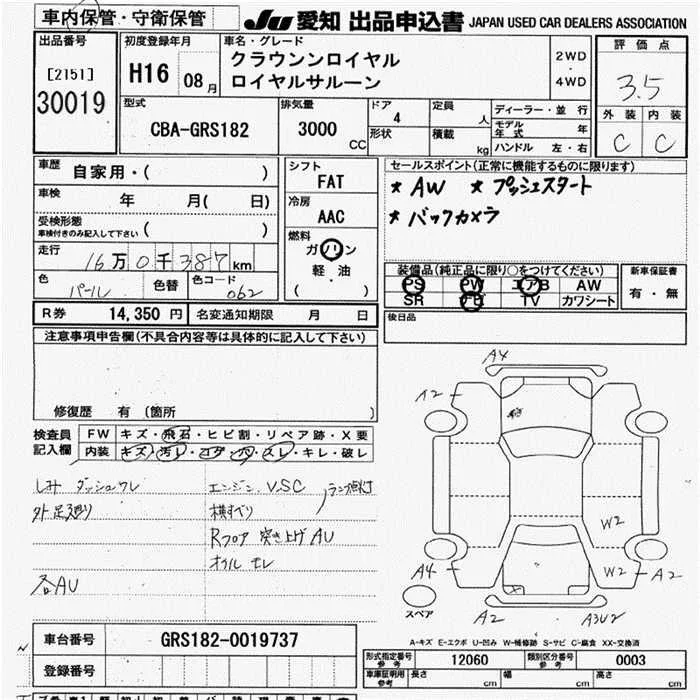 車内保管・守衛保管
JU 愛知 出品申込書 JAPAN USED CAR DEALERS ASSOCIATION
出品番号
[2151]
30019
初度登録年月
H16 08月
車名・グレード
クラウンンロイヤル
ロイヤルサルーン
2WD
・
4WD
評価点
3.5
外装 内装
C C
型式
CBA-GRS182
排気量
3000
CC
ドア
4
形状
定員
人
積載
kg
ディーラー・並行
モデル年式 年
ハンドル 左・右
車歴 自家用・( )
車検 年 月( 日)
受検形態
車検付きのみ記入して下さい ( )
走行
16万0千387km
色
パール
色替
色コード
062
シフト
FAT
冷房
AAC
燃料
ガソリン
軽・油
( )
セールスポイント(正常に機能するものに限ります)
★ AW ★ プッシュスタート
★ バックカメラ
装備品(純正品に限り○をつけてください)
PS PW エアB AW
SR ナビ TV カワシート
新車保証書
有・無
R券 14,350 円 名変通知期限 月 日
後日品
注意事項申告欄(不具合内容等は具体的に記入して下さい)
修復歴 有(箇所 )
検査員
記入欄
FW キズ・飛石・ヒビ割・リペア跡・X要
内装 キズ・汚レ・コゲ・穴・スレ・キレ・破レ
エンジン、VSC ランプ点灯
外足廻り
横すべり
Rフロア 突き上げ AU
オイル モレ
各AU
A4
A2
W2
A4
W2 A2
A2
A3U2
スペア
A-キズ E-エクボ U-凹み W-補修跡 S-サビ C-腐食 XX-交換済
車台番号 GRS182-0019737
登録番号
形式指定番号
参考
12060
類別区分番号
参考
0003
車庫証明用
参考
長さ cm 幅 cm 高さ cm